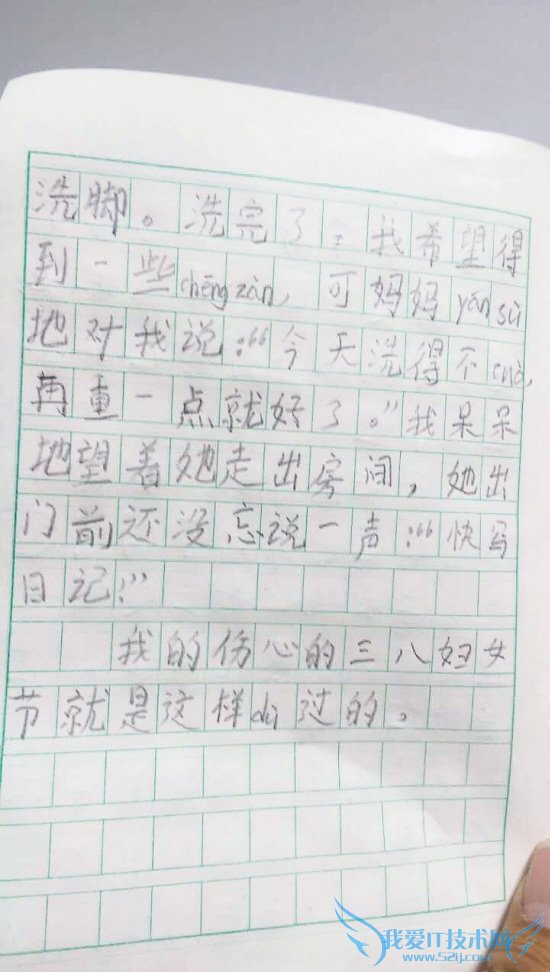 洗脚。洗完了，我希望得
到一些chēng zàn，可妈妈yán sù
地对我说：“今天洗得不cuò，
再重一点就好了。”我呆呆
地望着她走出房间，她出
门前还没忘说一声：“快写
日记！”
我的伤心的三八妇女
节就是这样dù过的。
我爱IT技术网
www.52ij.com